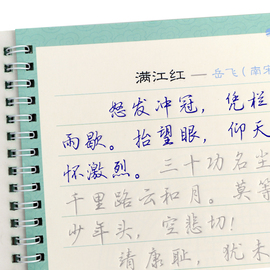 满江红 — 岳飞(南宋
怒发冲冠，凭栏
雨歇。抬望眼，仰天
怀激烈。三十功名尘
千里路云和月。莫等
少年头，空悲切！
靖康耻，犹未